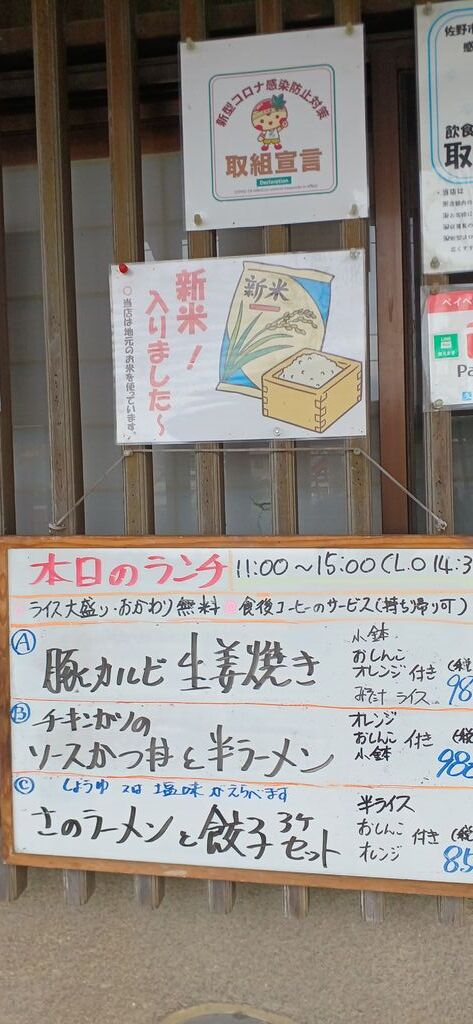 新型コロナ感染防止対策
取組宣言
Declaration
佐野市
飲食
取
・当店は
新米
新米！
入りました〜
○当店は地元のお米を使っています。
ペイペ
LINE
Pa
本日のランチ 11:00〜15:00（L.O 14:3
ライス大盛り・おかわり無料 食後コーヒーのサービス（持ち帰り可）
Ⓐ 豚カルビ生姜焼き
小鉢
おしんこ
オレンジ 付き
みそ汁 ライス
98
Ⓑ チキンカツの
ソースかつ丼と半ラーメン
オレンジ
おしんこ 付き
小鉢
98
Ⓒ しょうゆ 又は 塩味 がえらべます
さのラーメンと餃子3ケセット
半ライス
おしんこ 付き
オレンジ
85